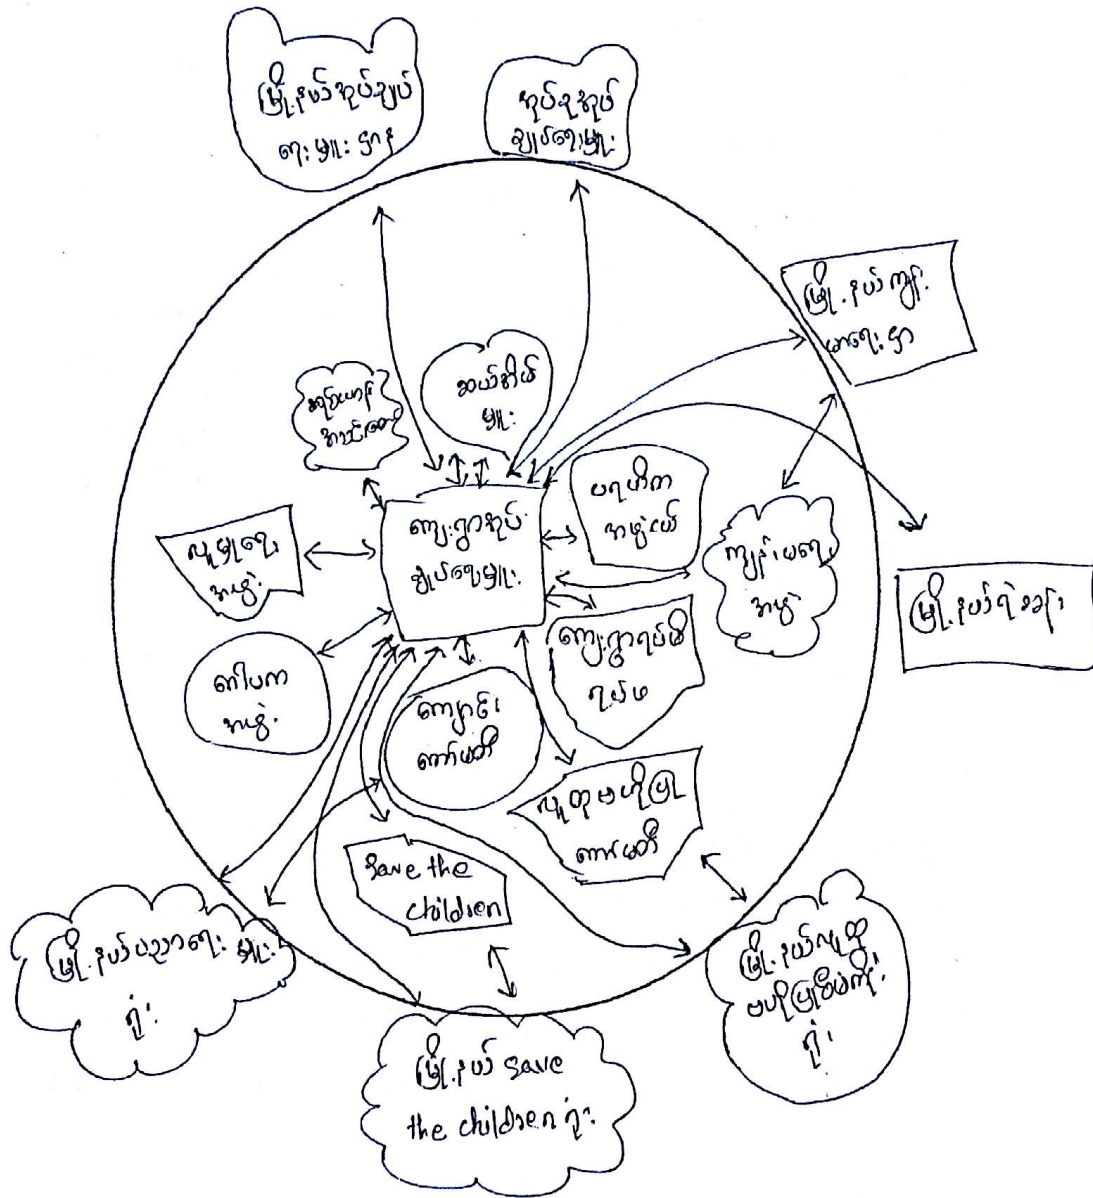 မြို့နယ်အုပ်ချုပ်
ရေးမှူးဌာန
အုပ်စုအုပ်
ချုပ်ရေးမှူး
မြို့နယ်ကျန်း
မာရေးဌာ
ဆယ်အိမ်
မှူး
ကျေးရွာအုပ်
ချုပ်ရေးမှူး
ပရဟိတ
အဖွဲ့ငယ်
ကျန်းမာရေး
အဖွဲ့
လူမှုရေး
အဖွဲ့
မြို့နယ်ရဲစခန်း
ကျေးရွာရပ်မိ
ရပ်ဖ
ဂေါပက
အဖွဲ့
ကျောင်း
ကော်မတီ
လူထုဗဟိုပြု
ကော်မတီ
Save the
children
မြို့နယ်ပညာရေးမှူး
ရုံး
မြို့နယ်လူထု
ဗဟိုပြုစီမံကိန်း
ရုံး
မြို့နယ် save
the children ရုံး